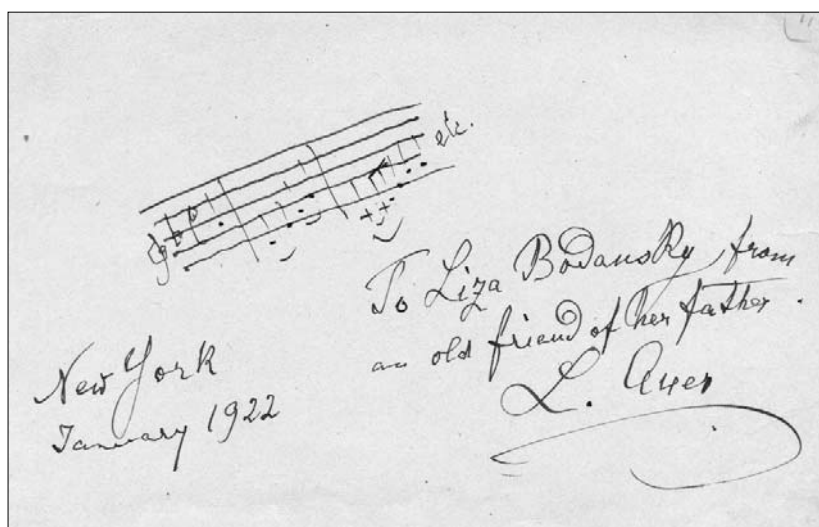 etc.
To Liza Bodansky, from
an old friend of her father.
L. Auer
New York
January 1922